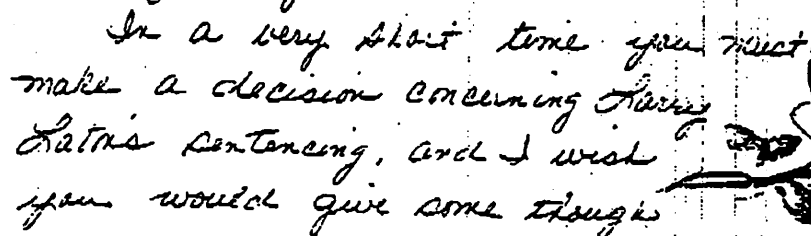 In a very short time you must
make a decision concerning Larry
Laton's sentencing, and I wish
you would give some though